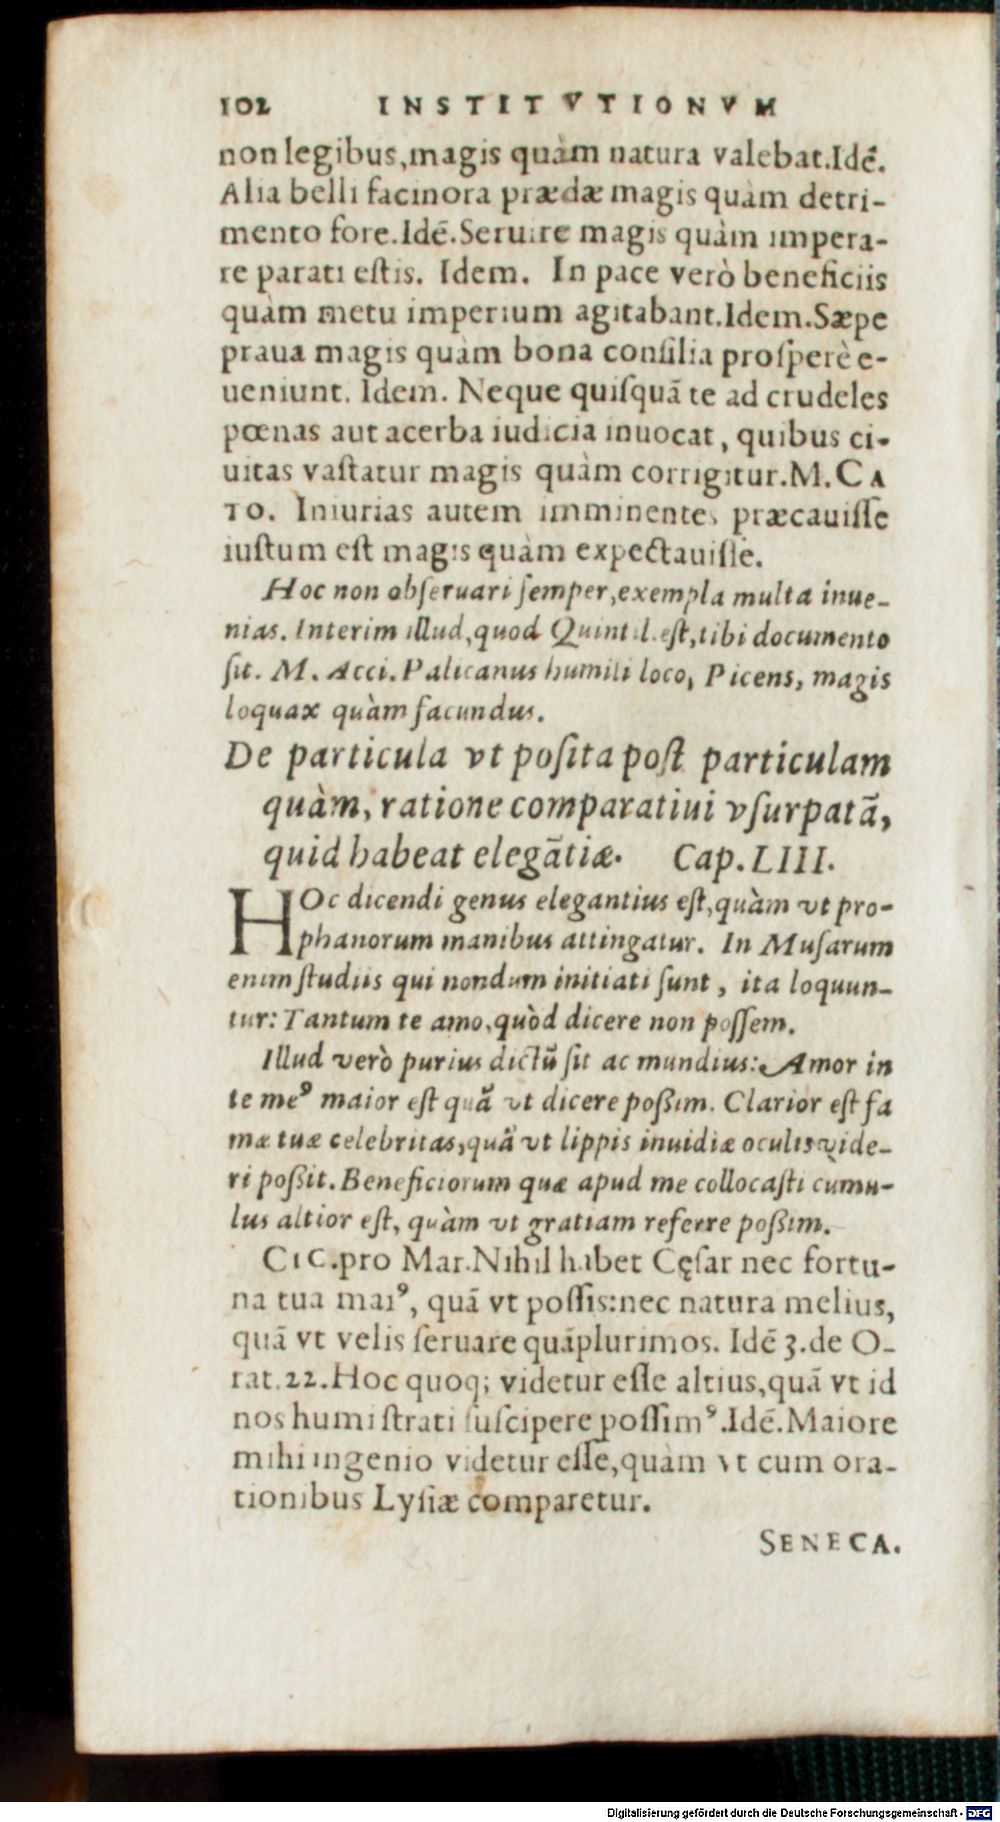 102 INSTITVTIONVM
non legibus, magis quàm natura valebat. Idẽ.
Alia belli facinora prædæ magis quàm detri-
mento fore. Idẽ. Seruire magis quàm impera-
re parati eſtis. Idem. In pace verò beneficiis
quàm metu imperium agitabant. Idem. Sæpe
praua magis quàm bona conſilia proſperè e-
ueniunt. Idem. Neque quiſquã te ad crudeles
pœnas aut acerba iudicia inuocat, quibus ci-
uitas vaſtatur magis quàm corrigitur. M. CA
TO. Iniurias autem imminentes præcauiſſe
iuſtum eſt magis quàm expectauiſſe.
Hoc non obſeruari ſemper, exempla multa inue-
nias. Interim illud, quod Quintil. eſt, tibi documento
ſit. M. Acci. Palicanus humili loco, Picens, magis
loquax quàm facundus.
De particula vt poſita poſt particulam
quàm, ratione comparatiui vſurpatã,
quid habeat elegãtiæ. Cap. LIII.
HOc dicendi genus elegantius eſt, quàm vt pro-
phanorum manibus attingatur. In Muſarum
enim ſtudiis qui nondum initiati ſunt, ita loquun-
tur: Tantum te amo, quòd dicere non poſſem.
Illud verò purius dictũ ſit ac mundius: Amor in
te meꝰ maior eſt quã vt dicere poßim. Clarior eſt fa
mæ tuæ celebritas, quã vt lippis inuidiæ oculis vide-
ri poßit. Beneficiorum quæ apud me collocaſti cumu-
lus altior eſt, quàm vt gratiam referre poßim.
CIC. pro Mar. Nihil habet Cęſar nec fortu-
na tua maiꝰ, quã vt poſſis: nec natura melius,
quã vt velis ſeruare quãplurimos. Idẽ 3. de O-
rat. 22. Hoc quoq; videtur eſſe altius, quã vt id
nos humi ſtrati ſuſcipere poſſimꝰ. Idẽ. Maiore
mihi ingenio videtur eſſe, quàm vt cum ora-
tionibus Lyſiæ comparetur.
SENECA.
Digitalisierung gefördert durch die Deutsche Forschungsgemeinschaft - DFG